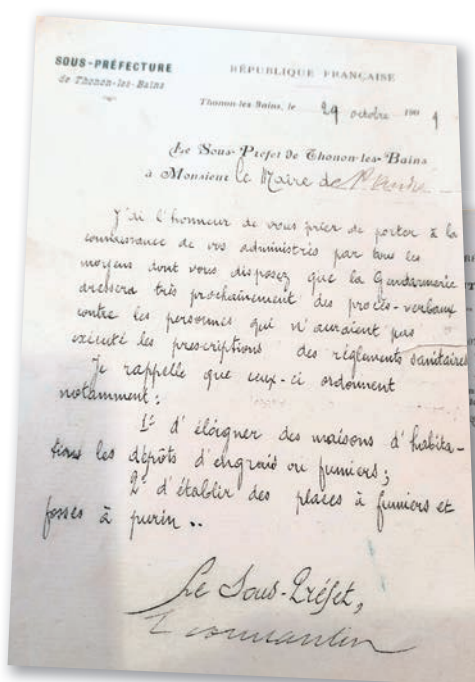 SOUS-PRÉFECTURE
de Thonon-les-Bains
RÉPUBLIQUE FRANÇAISE
Thonon-les-Bains, le 29 octobre 190
Le Sous-Préfet de Thonon-les-Bains
à Monsieur le Maire de
J'ai l'honneur de vous prier de porter à la
connaissance de vos administrés par tous les
moyens dont vous disposez que la Gendarmerie
dressera très prochainement des procès-verbaux
contre les personnes qui n'auraient pas
exécuté les prescriptions des règlements sanitaires
Je rappelle que ceux-ci ordonnent
notamment :
1º d'éloigner des maisons d'habita-
tions les dépôts d'engrais ou fumiers ;
2º d'établir des places à fumiers et
fosses à purin ..
Le Sous-Préfet,